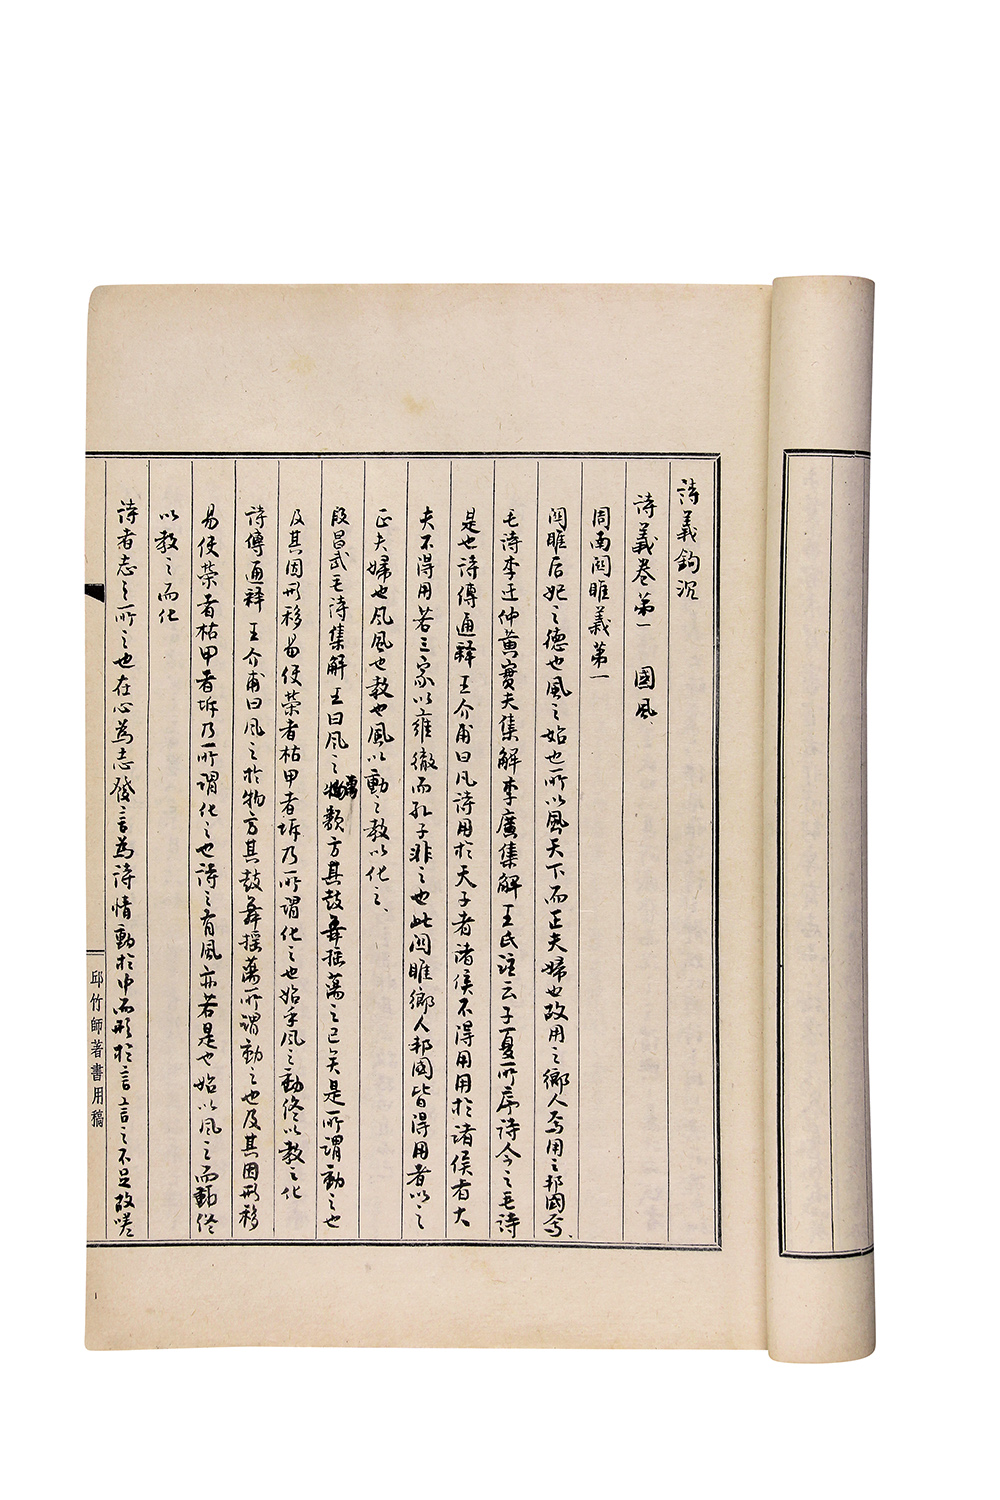 詩義鉤沉
詩義卷第一　國風
周南關雎義第一
関雎后妃之德也風之始也所以風天下而正夫婦也故用之鄉人焉用之邦國焉、
毛詩李迂仲黃實夫集解李廣集解王氏注云子夏所序詩今之毛詩
是也詩傳通釋王介甫曰凡詩用於天子者諸侯不得用用於諸侯者大
夫不得用若三家以雍徹而孔子非之也此関雎鄉人邦國皆得用者以之
正夫婦也風風也教也風以動之教以化之、
段昌武毛詩集解王曰風之萬類方其鼓舞搖蕩之已矣是所謂動之也
及其因形移易使榮者枯甲者坼乃所謂化之也始乎風之動終以教之化
詩傳通釋王介甫曰風之於物方其鼓舞搖蕩所謂動之也及其因形移
易使榮者枯甲者坼乃所謂化之也詩之有風亦若是也始以風之而動終
以教之而化
詩者志之所之也在心為志發言為詩情動於中而形於言言之不足故嗟
邱竹師著書用稿